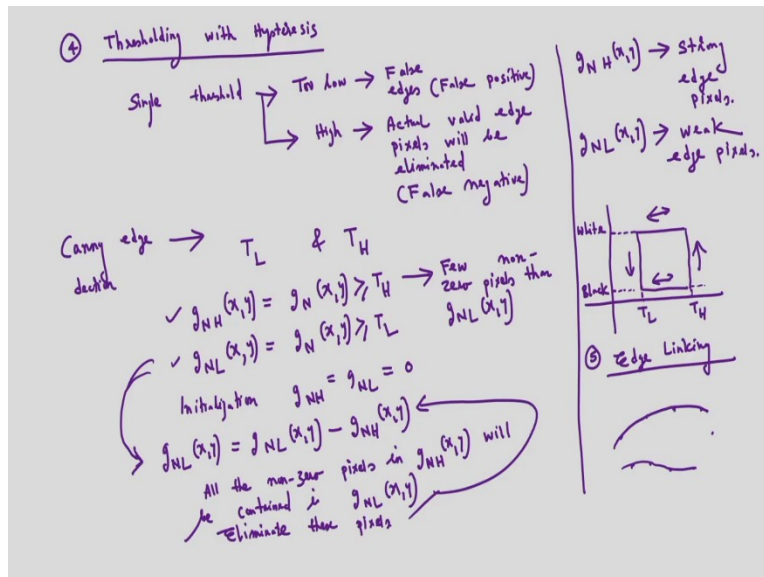 ④ Thresholding with Hysteresis
Single threshold → Too low → False
edges (False positive)
→ High → Actual valid edge
pixels will be
eliminated
(False negative)
Canny edge → T_L & T_H
dection
✓ g_NH(x,y) = g_N(x,y) ⩾ T_H → Few non-
zero pixels than
g_NL(x,y)
✓ g_NL(x,y) = g_N(x,y) ⩾ T_L
Initialization g_NH = g_NL = 0
g_NL(x,y) = g_NL(x,y) - g_NH(x,y)
All the non-zero pixels in g_NH(x,y) will
be contained in g_NL(x,y)
Eliminate these pixels
g_NH(x,y) → Strong
edge
pixels.
g_NL(x,y) → weak
edge pixels.
White
Black
T_L T_H
⑤ Edge Linking